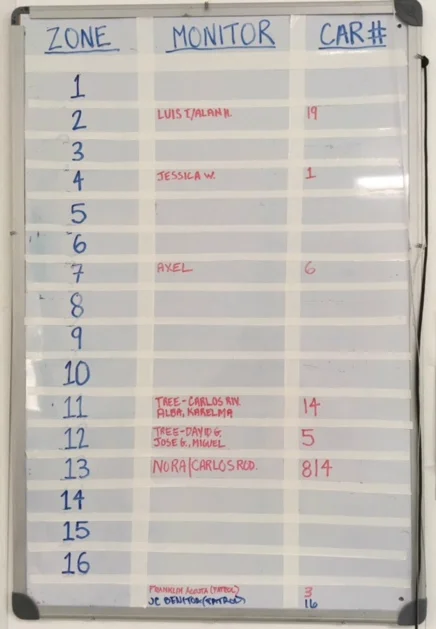 ZONE MONITOR CAR#
1
2 LUIS T/ALAN R. 19
3
4 JESSICA W. 1
5
6
7 AXEL 6
8
9
10
11 TREE-CARLOS RIV. 14
ALBA, KARELMA
12 TREE-DAVID G. 5
JOSE G., MIGUEL
13 NORA/CARLOS ROD. 814
14
15
16
FRANKLIN ACOSTA (PATROL) 3
JC BENITOR (PATROL) 16